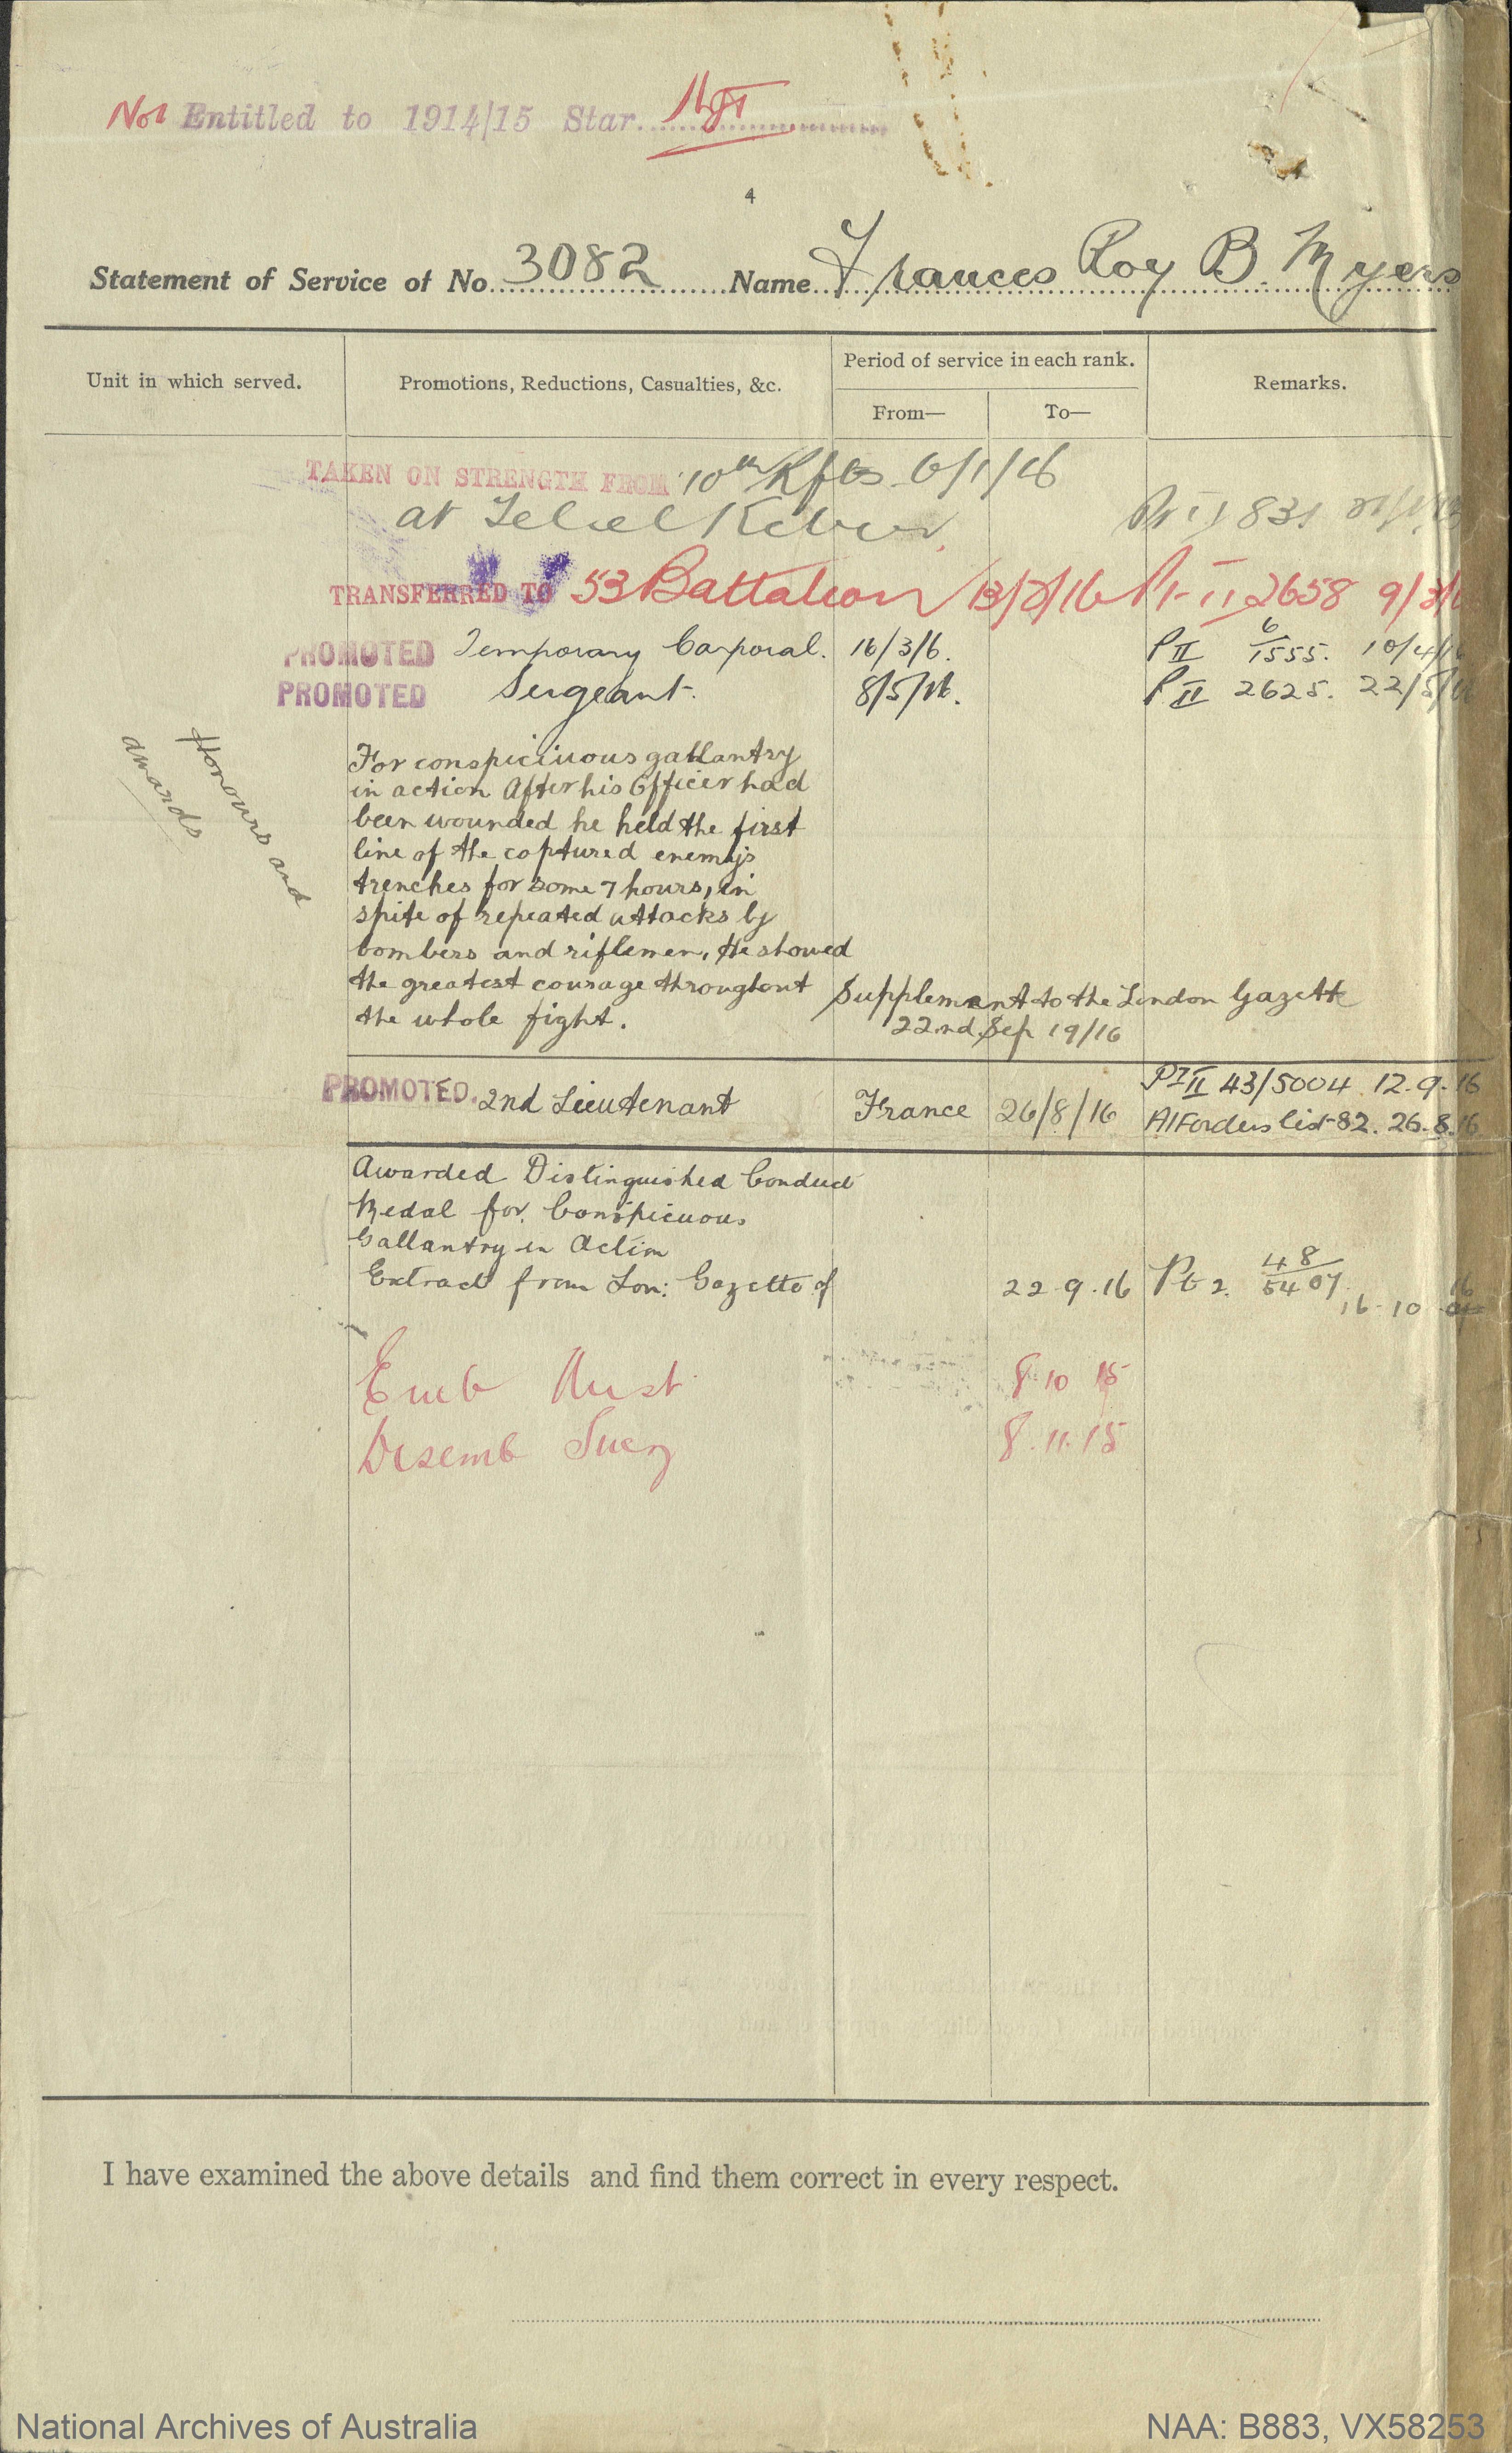 Not Entitled to 1914/15 Star.
4
Statement of Service of No. 3082 Name Frances Roy B. Myers
Unit in which served.
Promotions, Reductions, Casualties, &c.
Period of service in each rank.
From—
To—
Remarks.
TAKEN ON STRENGTH FROM 10th Rfts 6/1/16
at Tel el Kebir
831
TRANSFERRED TO 53 Battalion 13/2/16 Pt II 2658 9/3/
PROMOTED Temporary Corporal. 16/3/6. P II 6/1555. 10/4/16
PROMOTED Sergeant. 8/5/16. P II 2625. 22/5/16
Honours and
awards
For conspiciuous gallantry
in action After his Officer had
been wounded he held the first
line of the captured enemy's
trenches for some 7 hours, in
spite of repeated attacks by
bombers and riflemen, He showed
the greatest courage throughout
the whole fight.
Supplement to the London Gazette
22nd Sep 19/16
PROMOTED. 2nd Lieutenant France 26/8/16 Pt II 43/5004 12.9.16
AIF orders list 82. 26.8.16
Awarded Distinguished Conduct
Medal for Conspicuous
Gallantry in Action
Extract from Lon: Gazette of 22.9.16 Pt 2. 48/5407
16-10 16
Emb Aust 8 10 15
Disemb Suez 8.11.15
I have examined the above details and find them correct in every respect.
National Archives of Australia
NAA: B883, VX58253